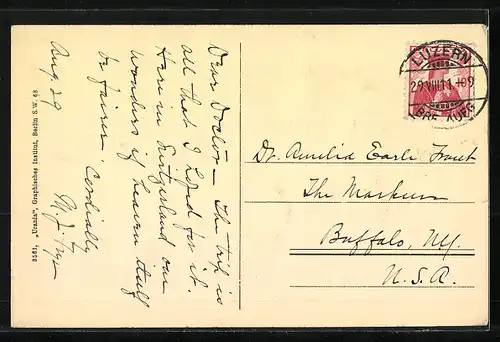 Dear Doctor - The trip is
all that I hoped for it.
Here in Switzerland one
wonders if heaven itself
be fairer. Cordially
Aug. 29
3597, "Urania", Graphisches Institut, Berlin S.W. 68
LUZERN
29.VIII.11.-09
BRF. AUFG
Dr. Amelia Earle Trant
The Markeen
Buffalo, N.Y.
U.S.A.